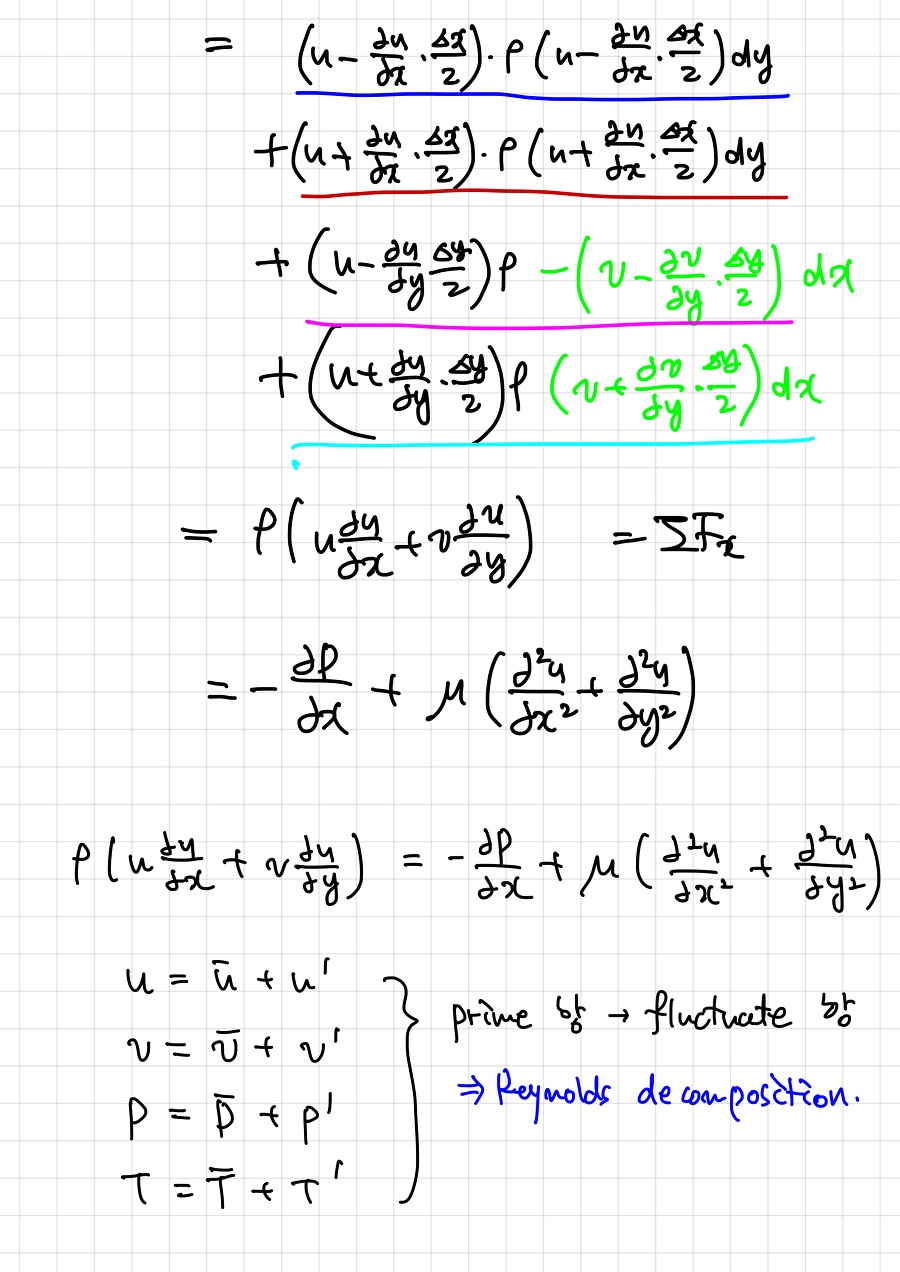 = (u - ∂u/∂x · Δx/2) · ρ (u - ∂u/∂x · Δx/2) dy
+ (u + ∂u/∂x · Δx/2) · ρ (u + ∂u/∂x · Δx/2) dy
+ (u - ∂u/∂y Δy/2) ρ - (v - ∂v/∂y · Δy/2) dx
+ (u + ∂u/∂y · Δy/2) ρ (v + ∂v/∂y · Δy/2) dx
= ρ (u ∂u/∂x + v ∂u/∂y) = ΣFx
= - ∂P/∂x + μ (∂²u/∂x² + ∂²u/∂y²)
ρ (u ∂u/∂x + v ∂u/∂y) = - ∂P/∂x + μ (∂²u/∂x² + ∂²u/∂y²)
u = ū + u'
v = v̄ + v'
P = P̄ + p'
T = T̄ + T'
prime 항 → fluctuate 항
⇒ Reynolds decomposition.